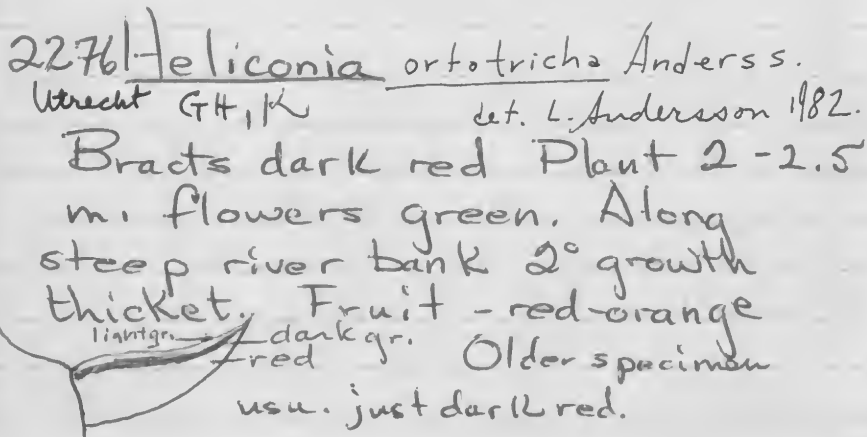 2276 Heliconia ortotricha Anderss.
Utrecht GH, K det. L. Andersson 1982.
Bracts dark red Plant 2-2.5
m. flowers green. Along
steep river bank 2° growth
thicket. Fruit - red-orange
liantgr. dark gr.
red Older specimen
usu. just dark red.